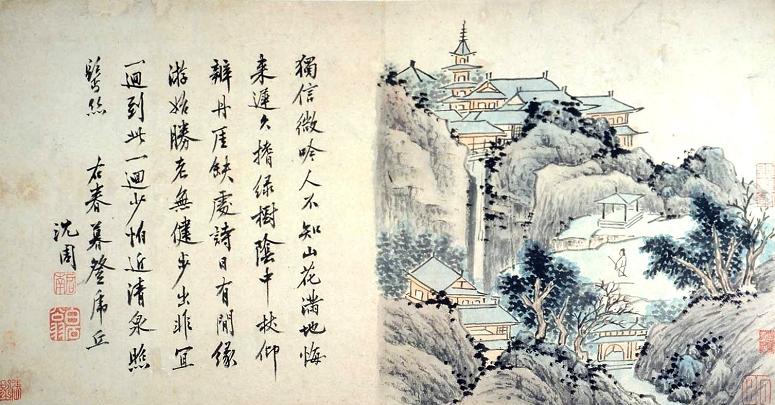 獨信微吟人不知山花滿地悔
來遲久揩綠樹陰中杖仰
辨丹崖缺處詩日有閒緣
游始勝老無健步出非宜
一迴到此一迴少怕近清泉照
鬢絲 右春暮登虎丘
沈周
啟南
白石翁